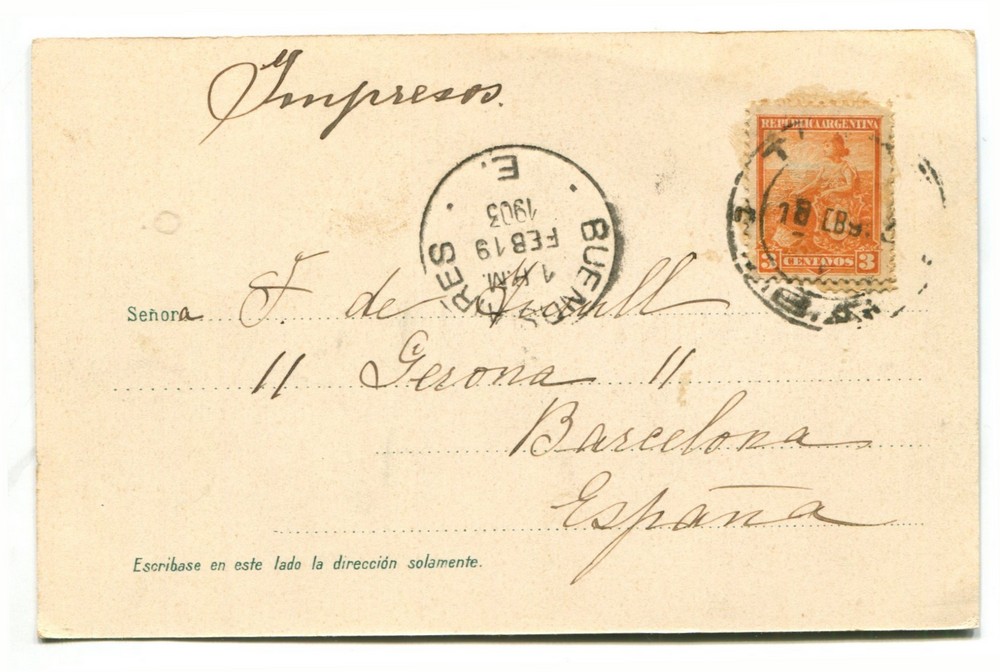 Impresos.
REPUBLICA ARGENTINA
18 EB 9
3 CENTAVOS 3
BUENOS AIRES
E.
1903
FEB 19
1 M.
Señora F. de
11 Gerona 11
Barcelona
España
Escríbase en este lado la dirección solamente.